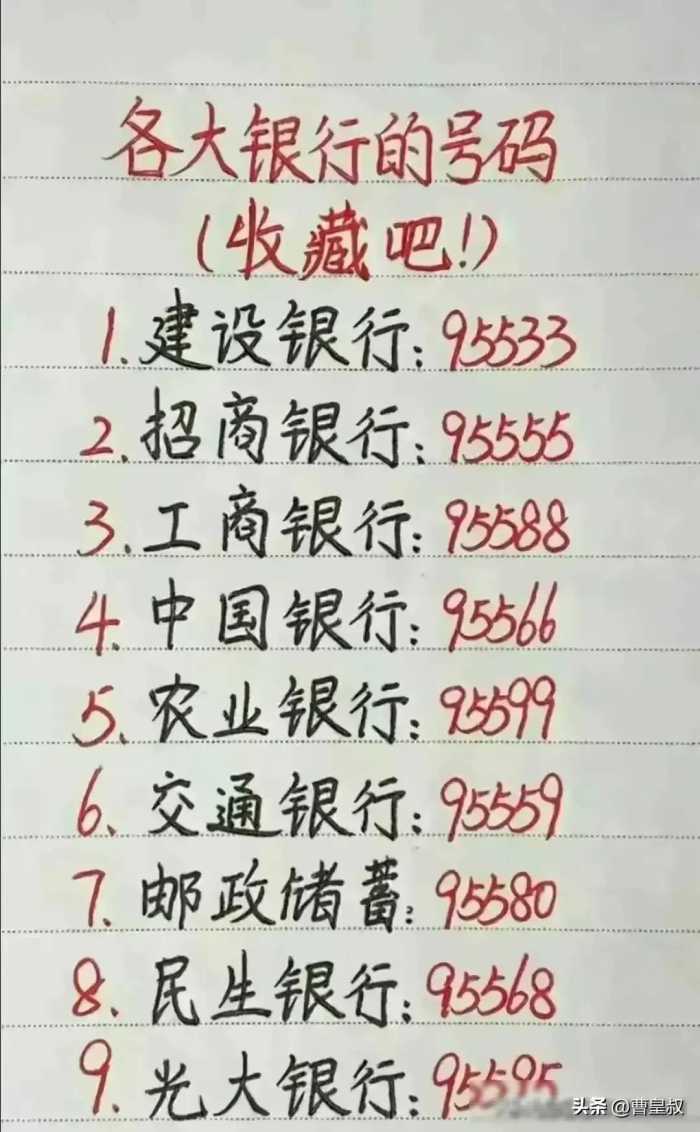 各大银行的号码
(收藏吧!)
1.建设银行:95533
2.招商银行:95555
3.工商银行:95588
4.中国银行:95566
5.农业银行:95599
6.交通银行:95559
7.邮政储蓄:95580
8.民生银行:95568
9.光大银行:95595
头条 @曹皇叔